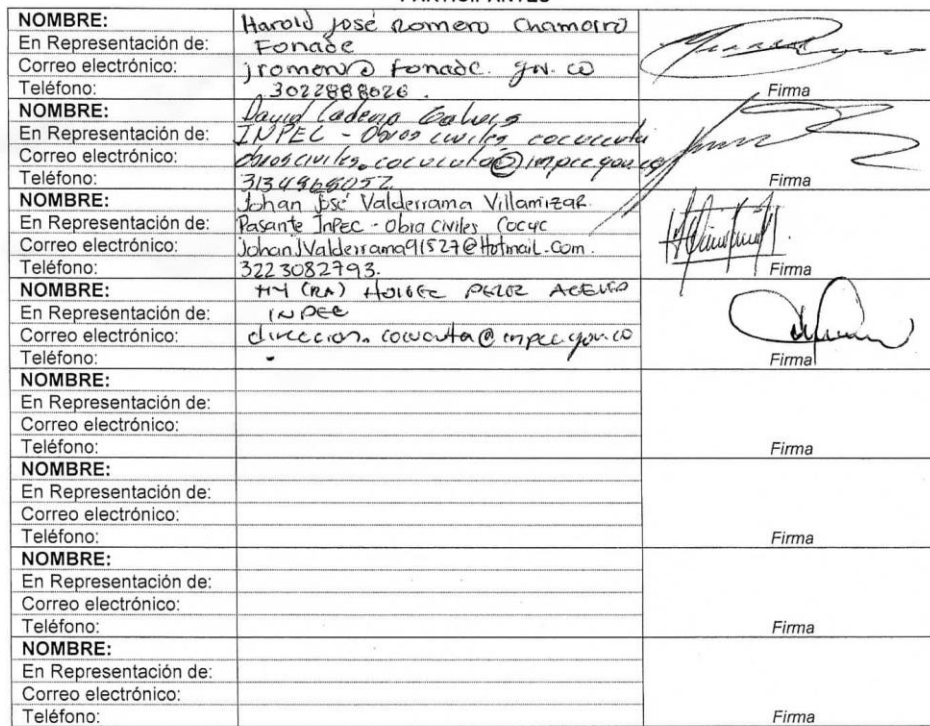 PARTICIPANTES
NOMBRE: Harold José Romero Chamorro
En Representación de: Fonade
Correo electrónico: jromero@fonade.gov.co
Teléfono: 3022888026.
Firma
NOMBRE: David Cadena Galvis
En Representación de: INPEC - Obras civiles cocucuta
Correo electrónico: obrasciviles.cocucuta@inpec.gov.co
Teléfono: 3134968052
Firma
NOMBRE: Johan José Valderrama Villamizar.
En Representación de: Pasante Inpec - Obra civiles Cocuc
Correo electrónico: JohanJValderrama91527@Hotmail.Com.
Teléfono: 3223082793.
Firma
NOMBRE: (RA) PEREZ ACEVEDO
En Representación de: INPEC
Correo electrónico: direccion.cocucuta@inpec.gov.co
Teléfono:
Firma
NOMBRE:
En Representación de:
Correo electrónico:
Teléfono:
Firma
NOMBRE:
En Representación de:
Correo electrónico:
Teléfono:
Firma
NOMBRE:
En Representación de:
Correo electrónico:
Teléfono:
Firma
NOMBRE:
En Representación de:
Correo electrónico:
Teléfono:
Firma